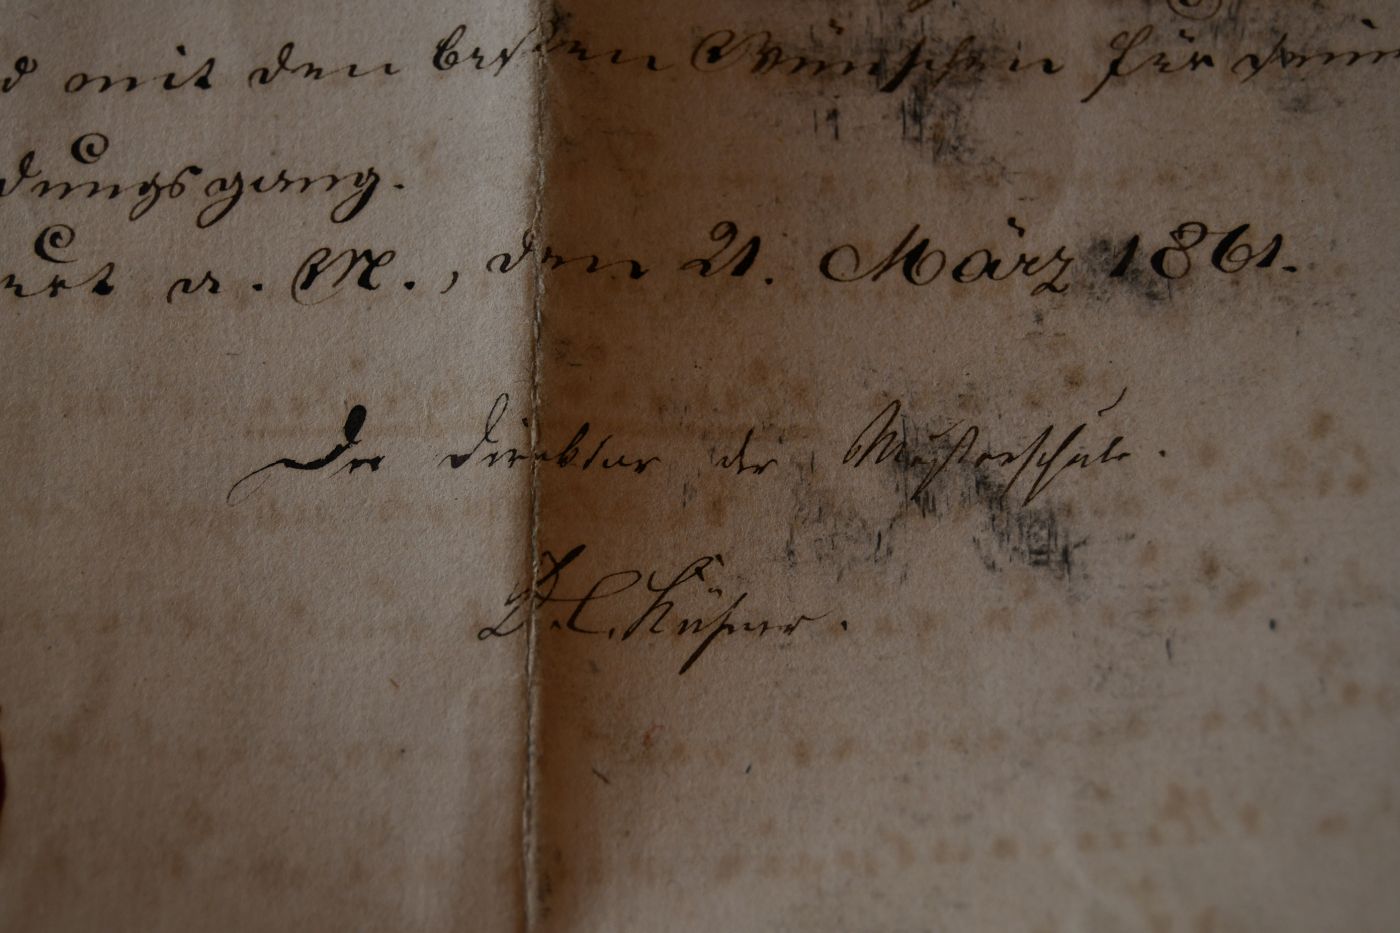 d mit den besten Wünschen für sein
dungsgang.
urt a. M., den 21. März 1861.
Der Direktor der Musterschule.
Dr. C. Kühner.